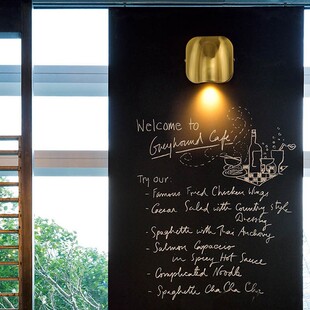 Welcome to
Greyhound Cafe
Try our:
- Famous Fried Chicken Wings
- Caesar Salad with Country Style
Dressing
- Spaghetti with Thai Anchovy
- Salmon Capaccio
in Spicy Hot Sauce
- Complicated Noodle
- Spaghetti Cha Cha Cha